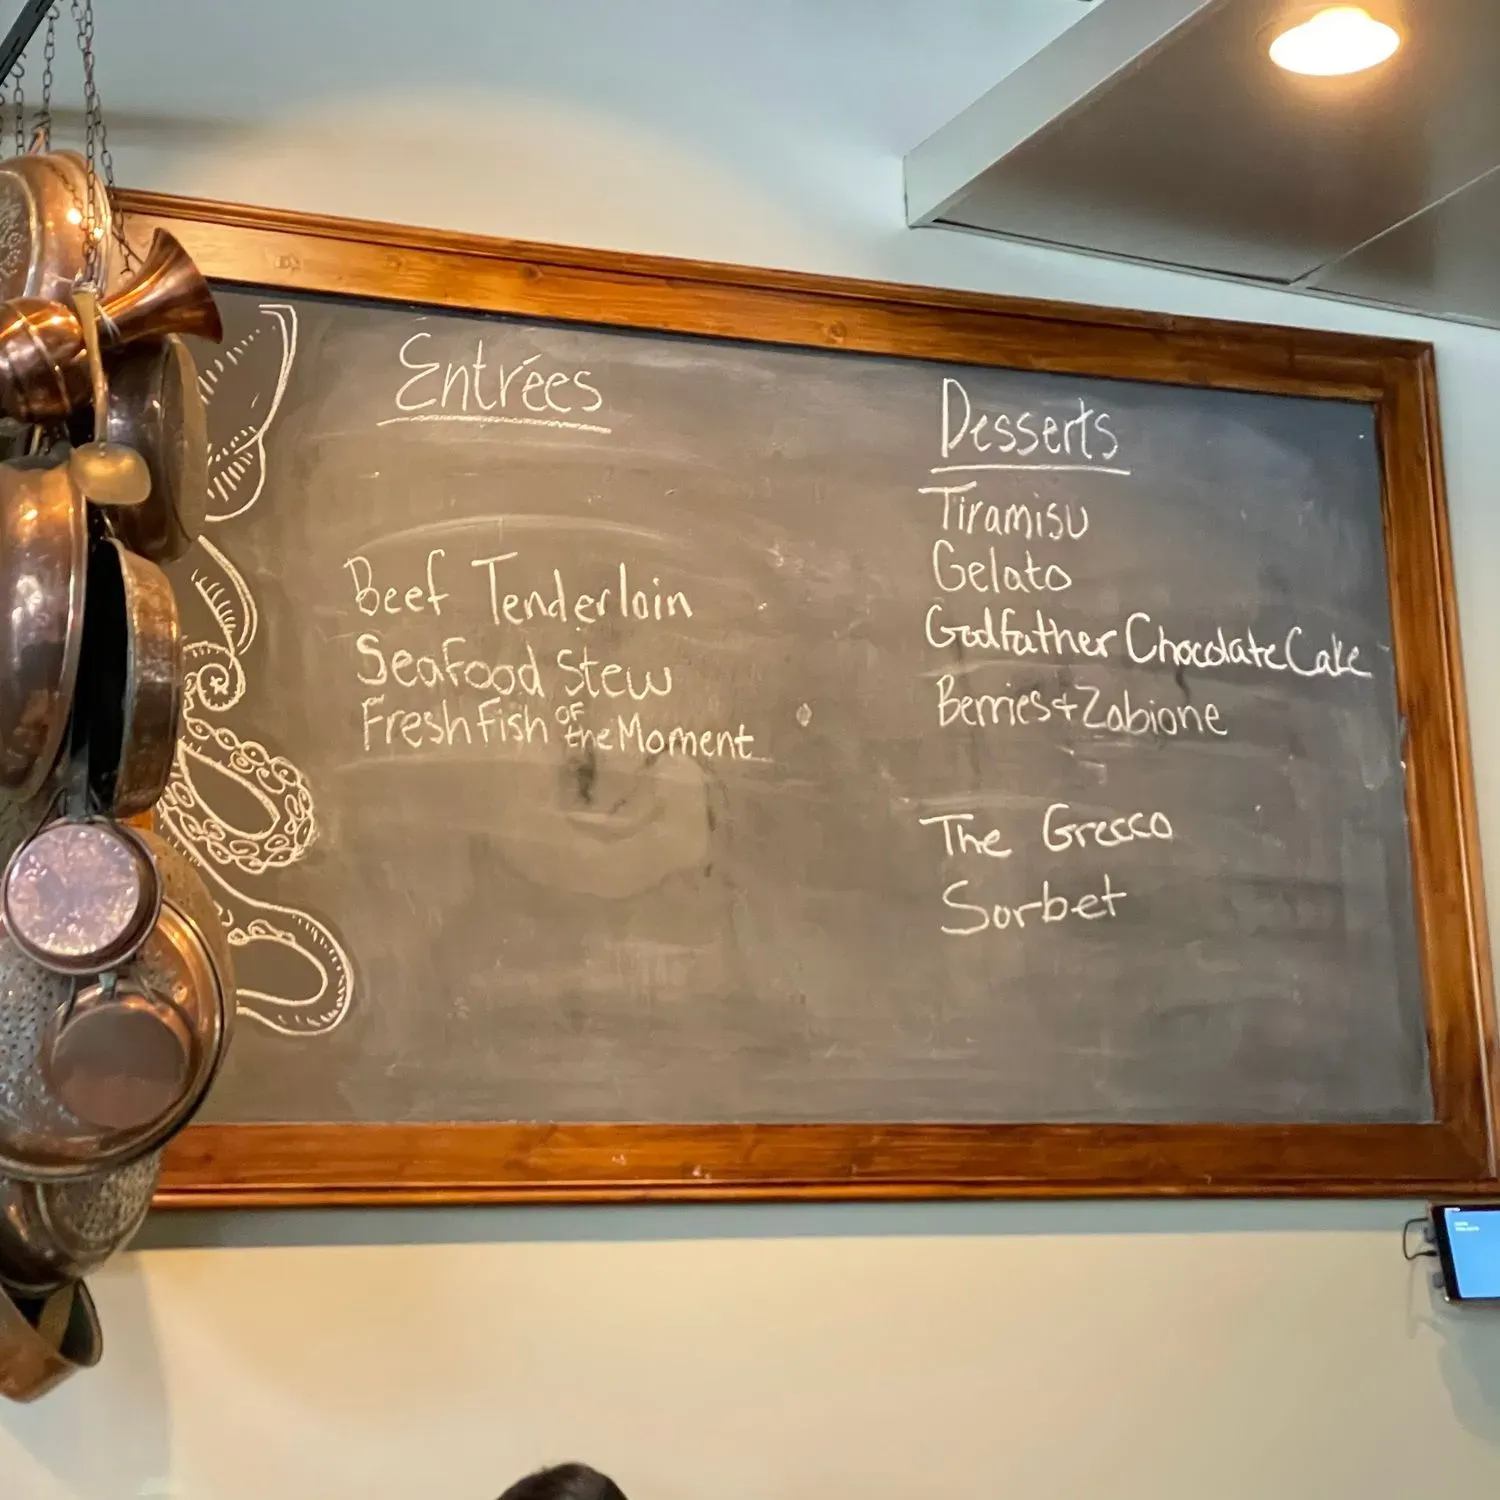 Entrées
Beef Tenderloin
Seafood Stew
Fresh Fish OF the Moment
Desserts
Tiramisu
Gelato
Godfather Chocolate Cake
Berries + Zabione
The Grecco
Sorbet